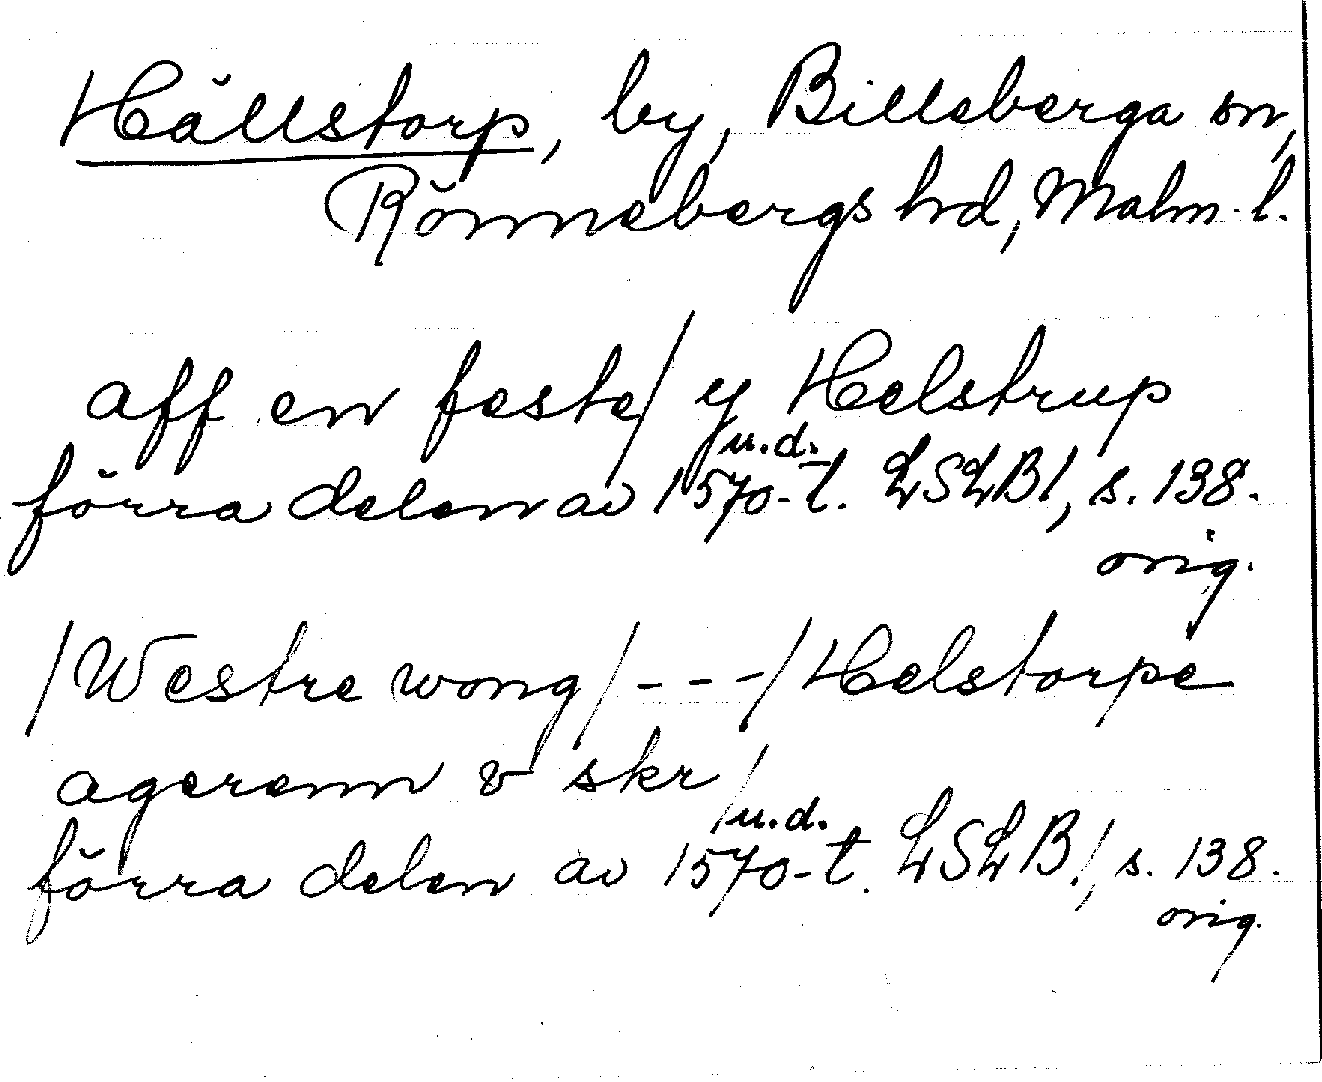 Hällstorp, by, Billeberga sn,
Rönnebergs hd, Malm. l.
aff en feste / y Helstrup
förra delen av 1570-t. u.d. LSLB 1, s. 138.
orig.
/ Westre wong / - - - / Helstorpe
agerenn v skr /
förra delen av 1570-t. u.d. LSLB 1, s. 138.
orig.